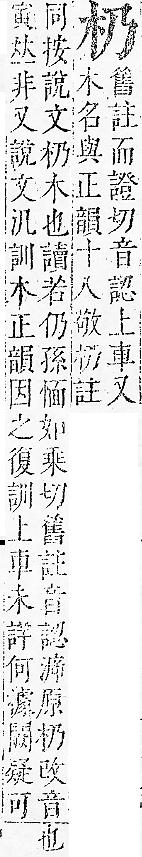 舊註而證切音認上車又
木名與正韻十八敬註
同按說文木也讀若仍孫愐如乘切舊註音認原改音
寅𠀤非又說文汎訓木正韻因之復訓上車未詳何據闕疑可
也